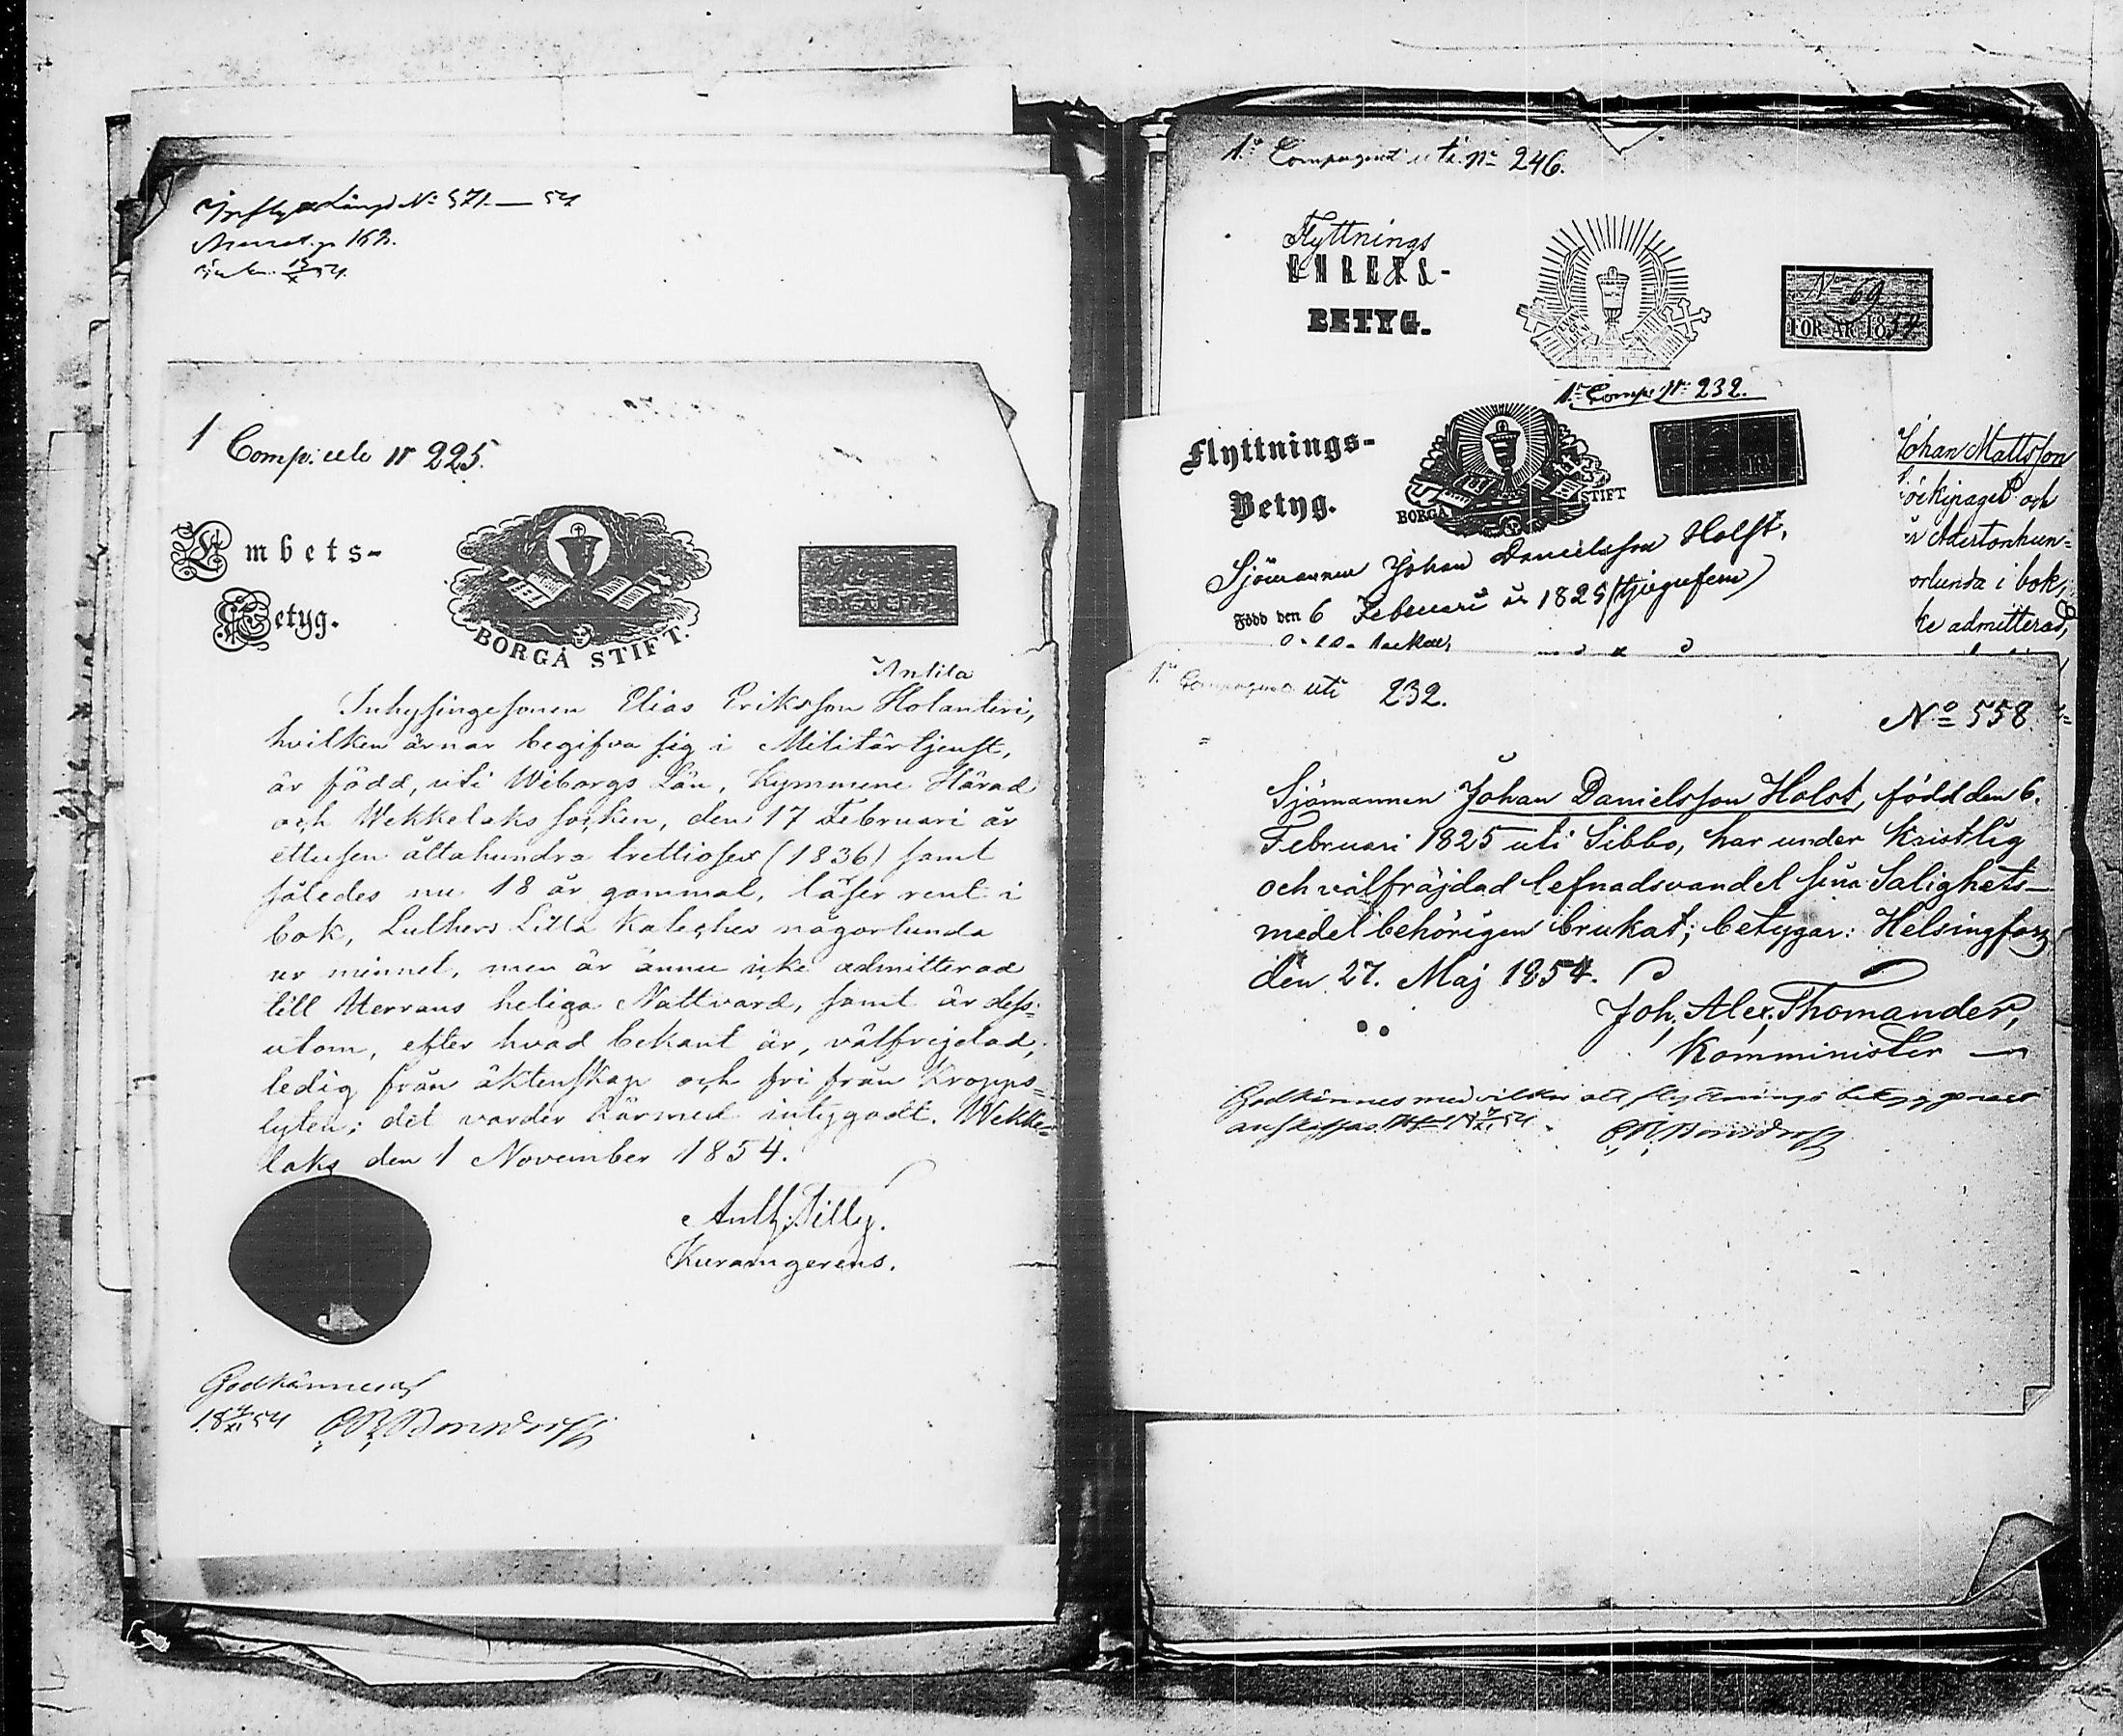 Längd No 571. — 54
p 162.
1 Comp. uti No 225.
Embets-
Betyg.
BORGÅ STIFT.
Antila
Inhysingesonen Elias Eriksson Holanteri,
hvilken ärnar begifva sig i Militär tjenst,
är född, uti Wiborgs Län, Kymmene Härad
och Wekkelaks socken, den 17 Februari år
ettusen åttahundra trettiosex (1836) samt
således nu 18 år gammal, läser rent i
bok, Luthers Lilla Kateches någorlunda
ur minnet, men är ännu icke admitterad
till Herrans heliga Nattvard, samt är dess-
utom, efter hvad bekant är, välfrejdad,
ledig från äktenskap och fri från Kropps-
lyten; det varder härmed intygadt. Wekke-
laks den 1 November 1854.
Anth. Tilly.
Kuramgerens.
Godkännes
18 54
1:a Compagniet uti No 246.
Flyttnings
BETYG.
No 69
FÖR ÅR 1854.
1:a Comp. No 232.
Flyttnings-
Betyg.
BORGÅ STIFT
Sjömannen Johan Danielsson Holst,
Född den 6 Februari år 1825 (tjugufem)
Johan Mattsson
och
Adertonhun-
orlunda i bok,
ke admitterad,
1:a Compagniet uti 232.
No 558.
Sjömannen Johan Danielsson Holst, född den 6.
Februari 1825 uti Sibbo, har under kristlig
och välfräjdad lefnadsvandel sina Salighets-
medel behörigen brukat; betygar: Helsingfors
den 27. Maj 1854.
Joh. Alex. Thomander,
Komminister
Godkännes med vilkor att flyttnings betyg genast
anskaffas